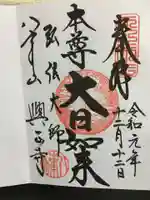 奉拝
令和元年
月十二日
本尊 大日如来
弘法大師
八事山 興正寺